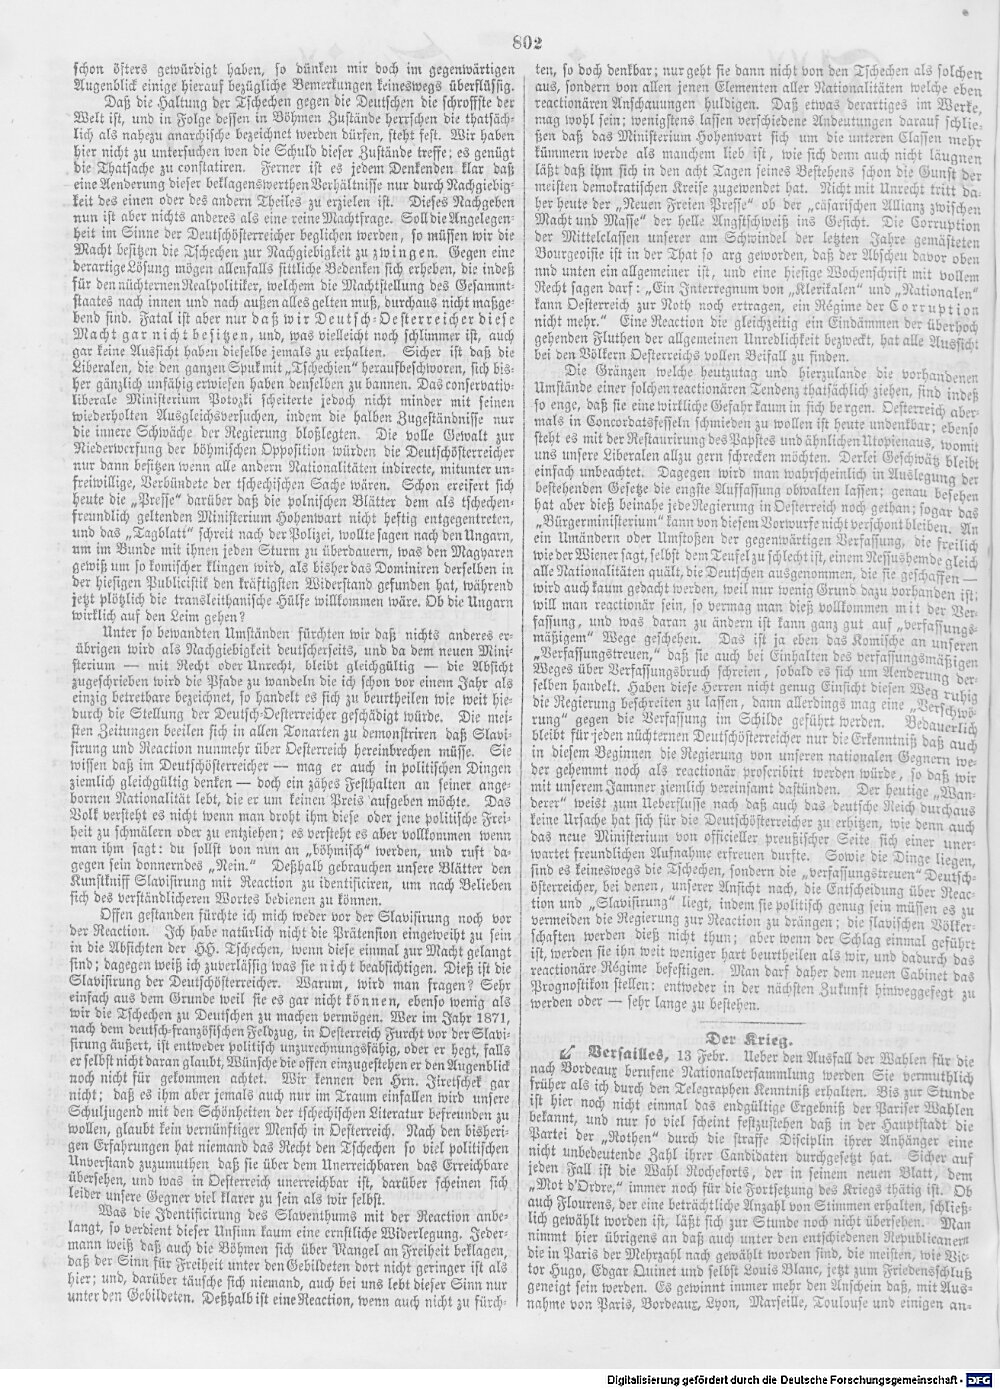 802
schon öfters gewürdigt haben, so dünken mir doch im gegenwärtigen
Augenblick einige hierauf bezügliche Bemerkungen keineswegs überflüssig.
Daß die Haltung der Tschechen gegen die Deutschen die schroffste der
Welt ist, und in Folge dessen in Böhmen Zustände herrschen die thatsäch-
lich als nahezu anarchische bezeichnet werden dürfen, steht fest. Wir haben
hier nicht zu untersuchen wen die Schuld dieser Zustände treffe; es genügt
die Thatsache zu constatiren. Ferner ist es jedem Denkenden klar daß
eine Aenderung dieser beklagenswerthen Verhältnisse nur durch Nachgiebig-
keit des einen oder des andern Theiles zu erzielen ist. Dieses Nachgeben
nun ist aber nichts anderes als eine reine Machtfrage. Soll die Angelegen-
heit im Sinne der Deutschösterreicher beglichen werden, so müssen wir die
Macht besitzen die Tschechen zur Nachgiebigkeit zu zwingen. Gegen eine
derartige Lösung mögen allenfalls sittliche Bedenken sich erheben, die indeß
für den nüchternen Realpolitiker, welchem die Machtstellung des Gesammt-
staates nach innen und nach außen alles gelten muß, durchaus nicht maßge-
bend sind. Fatal ist aber nur daß wir Deutsch-Oesterreicher diese
Macht gar nicht besitzen, und, was vielleicht noch schlimmer ist, auch
gar keine Aussicht haben dieselbe jemals zu erhalten. Sicher ist daß die
Liberalen, die den ganzen Spuk mit „Tschechien“ heraufbeschworen, sich bis-
her gänzlich unfähig erwiesen haben denselben zu bannen. Das conservativ-
liberale Ministerium Potozki scheiterte jedoch nicht minder mit seinen
wiederholten Ausgleichsversuchen, indem die halben Zugeständnisse nur
die innere Schwäche der Regierung bloßlegten. Die volle Gewalt zur
Niederwerfung der böhmischen Opposition würden die Deutschösterreicher
nur dann besitzen wenn alle andern Nationalitäten indirecte, mitunter un-
freiwillige, Verbündete der tschechischen Sache wären. Schon ereifert sich
heute die „Presse“ darüber daß die polnischen Blätter dem als tschechen-
freundlich geltenden Ministerium Hohenwart nicht heftig entgegentreten,
und das „Tagblatt“ schreit nach der Polizei, wollte sagen nach den Ungarn,
um im Bunde mit ihnen jeden Sturm zu überdauern, was den Magyaren
gewiß um so komischer klingen wird, als bisher das Dominiren derselben in
der hiesigen Publicistik den kräftigsten Widerstand gefunden hat, während
jetzt plötzlich die transleithanische Hülfe willkommen wäre. Ob die Ungarn
wirklich auf den Leim gehen?
Unter so bewandten Umständen fürchten wir daß nichts anderes er-
übrigen wird als Nachgiebigkeit deutscherseits, und da dem neuen Mini-
sterium — mit Recht oder Unrecht, bleibt gleichgültig — die Absicht
zugeschrieben wird die Pfade zu wandeln die ich schon vor einem Jahr als
einzig betretbare bezeichnet, so handelt es sich zu beurtheilen wie weit hie-
durch die Stellung der Deutsch-Oesterreicher geschädigt würde. Die mei-
sten Zeitungen beeilen sich in allen Tonarten zu demonstriren daß Slavi-
sirung und Reaction nunmehr über Oesterreich hereinbrechen müsse. Sie
wissen daß im Deutschösterreicher — mag er auch in politischen Dingen
ziemlich gleichgültig denken — doch ein zähes Festhalten an seiner ange-
bornen Nationalität lebt, die er um keinen Preis aufgeben möchte. Das
Volk versteht es nicht wenn man droht ihm diese oder jene politische Frei-
heit zu schmälern oder zu entziehen; es versteht es aber vollkommen wenn
man ihm sagt: du sollst von nun an „böhmisch“ werden, und ruft da-
gegen sein donnerndes „Nein.“ Deßhalb gebrauchen unsere Blätter den
Kunstkniff Slavisirung mit Reaction zu identificiren, um nach Belieben
sich des verständlicheren Wortes bedienen zu können.
Offen gestanden fürchte ich mich weder vor der Slavisirung noch vor
der Reaction. Ich habe natürlich nicht die Prätension eingeweiht zu sein
in die Absichten der HH. Tschechen, wenn diese einmal zur Macht gelangt
sind; dagegen weiß ich zuverlässig was sie nicht beabsichtigen. Dieß ist die
Slavisirung der Deutschösterreicher. Warum, wird man fragen? Sehr
einfach aus dem Grunde weil sie es gar nicht können, ebenso wenig als
wir die Tschechen zu Deutschen zu machen vermögen. Wer im Jahr 1871,
nach dem deutsch-französischen Feldzug, in Oesterreich Furcht vor der Slavi-
sirung äußert, ist entweder politisch unzurechnungsfähig, oder er hegt, falls
er selbst nicht daran glaubt, Wünsche die offen einzugestehen er den Augenblick
noch nicht für gekommen achtet. Wir kennen den Hrn. Jiretschek gar
nicht; daß es ihm aber jemals auch nur im Traum einfallen wird unsere
Schuljugend mit den Schönheiten der tschechischen Literatur befreunden zu
wollen, glaubt kein vernünftiger Mensch in Oesterreich. Nach den bisheri-
gen Erfahrungen hat niemand das Recht den Tschechen so viel politischen
Unverstand zuzumuthen daß sie über dem Unerreichbaren das Erreichbare
übersehen, und was in Oesterreich unerreichbar ist, darüber scheinen sich
leider unsere Gegner viel klarer zu sein als wir selbst.
Was die Identificirung des Slaventhums mit der Reaction anbe-
langt, so verdient dieser Unsinn kaum eine ernstliche Widerlegung. Jeder-
mann weiß daß auch die Böhmen sich über Mangel an Freiheit beklagen,
daß der Sinn für Freiheit unter den Gebildeten dort nicht geringer ist als
hier; und, darüber täusche sich niemand, auch bei uns lebt dieser Sinn nur
unter den Gebildeten. Deßhalb ist eine Reaction, wenn auch nicht zu fürch-
ten, so doch denkbar; nur geht sie dann nicht von den Tschechen als solchen
aus, sondern von allen jenen Elementen aller Nationalitäten welche eben
reactionären Anschauungen huldigen. Daß etwas derartiges im Werke,
mag wohl sein; wenigstens lassen verschiedene Andeutungen darauf schlie-
ßen daß das Ministerium Hohenwart sich um die unteren Classen mehr
kümmern werde als manchem lieb ist, wie sich denn auch nicht läugnen
läßt daß ihm sich in den acht Tagen seines Bestehens schon die Gunst der
meisten demokratischen Kreise zugewendet hat. Nicht mit Unrecht tritt da-
her heute der „Neuen Freien Presse“ ob der „cäsarischen Allianz zwischen
Macht und Masse“ der helle Angstschweiß ins Gesicht. Die Corruption
der Mittelclassen unserer am Schwindel der letzten Jahre gemästeten
Bourgeoisie ist in der That so arg geworden, daß der Abscheu davor oben
und unten ein allgemeiner ist, und eine hiesige Wochenschrift mit vollem
Recht sagen darf: „Ein Interregnum von „Klerikalen“ und „Nationalen“
kann Oesterreich zur Noth noch ertragen, ein Régime der Corruption
nicht mehr.“ Eine Reaction die gleichzeitig ein Eindämmen der überhoch
gehenden Fluthen der allgemeinen Unredlichkeit bezweckt, hat alle Aussicht
bei den Völkern Oesterreichs vollen Beifall zu finden.
Die Gränzen welche heutzutag und hierzulande die vorhandenen
Umstände einer solchen reactionären Tendenz thatsächlich ziehen, sind indeß
so enge, daß sie eine wirkliche Gefahr kaum in sich bergen. Oesterreich aber-
mals in Concordatsfesseln schmieden zu wollen ist heute undenkbar; ebenso
steht es mit der Restaurirung des Papstes und ähnlichen Utopien aus, womit
uns unsere Liberalen allzu gern schrecken möchten. Derlei Geschwätz bleibt
einfach unbeachtet. Dagegen wird man wahrscheinlich in Auslegung der
bestehenden Gesetze die engste Auffassung obwalten lassen; genau besehen
hat aber dieß beinahe jede Regierung in Oesterreich noch gethan; sogar das
„Bürgerministerium“ kann von diesem Vorwurfe nicht verschont bleiben. An
ein Umändern oder Umstoßen der gegenwärtigen Verfassung, die freilich
wie der Wiener sagt, selbst dem Teufel zu schlecht ist, einem Nessushemde gleich
alle Nationalitäten quält, die Deutschen ausgenommen, die sie geschaffen —
wird auch kaum gedacht werden, weil nur wenig Grund dazu vorhanden ist;
will man reactionär sein, so vermag man dieß vollkommen mit der Ver-
fassung, und was daran zu ändern ist kann ganz gut auf „verfassungs-
mäßigem“ Wege geschehen. Das ist ja eben das Komische an unseren
„Verfassungstreuen,“ daß sie auch bei Einhalten des verfassungsmäßigen
Weges über Verfassungsbruch schreien, sobald es sich um Aenderung der-
selben handelt. Haben diese Herren nicht genug Einsicht diesen Weg ruhig
die Regierung beschreiten zu lassen, dann allerdings mag eine „Verschwö-
rung“ gegen die Verfassung im Schilde geführt werden. Bedauerlich
bleibt für jeden nüchternen Deutschösterreicher nur die Erkenntniß daß auch
in diesem Beginnen die Regierung von unseren nationalen Gegnern we-
der gehemmt noch als reactionär proscribirt werden würde, so daß wir
mit unserem Jammer ziemlich vereinsamt dastünden. Der heutige „Wan-
derer“ weist zum Ueberflusse nach daß auch das deutsche Reich durchaus
keine Ursache hat sich für die Deutschösterreicher zu erhitzen, wie denn auch
das neue Ministerium von officieller preußischer Seite sich einer uner-
wartet freundlichen Aufnahme erfreuen durfte. Sowie die Dinge liegen,
sind es keineswegs die Tschechen, sondern die „verfassungstreuen“ Deutsch-
österreicher, bei denen, unserer Ansicht nach, die Entscheidung über Reac-
tion und „Slavisirung“ liegt, indem sie politisch genug sein müssen es zu
vermeiden die Regierung zur Reaction zu drängen; die slavischen Völker-
schaften werden dieß nicht thun; aber wenn der Schlag einmal geführt
ist, werden sie ihn weit weniger hart beurtheilen als wir, und dadurch das
reactionäre Régime befestigen. Man darf daher dem neuen Cabinet das
Prognostikon stellen: entweder in der nächsten Zukunft hinweggefegt zu
werden oder — sehr lange zu bestehen.
Der Krieg.
Versailles, 13 Febr. Ueber den Ausfall der Wahlen für die
nach Bordeaux berufene Nationalversammlung werden Sie vermuthlich
früher als ich durch den Telegraphen Kenntniß erhalten. Bis zur Stunde
ist hier noch nicht einmal das endgültige Ergebniß der Pariser Wahlen
bekannt, und nur so viel scheint festzustehen daß in der Hauptstadt die
Partei der „Rothen“ durch die straffe Disciplin ihrer Anhänger eine
nicht unbedeutende Zahl ihrer Candidaten durchgesetzt hat. Sicher auf
jeden Fall ist die Wahl Rocheforts, der in seinem neuen Blatt, dem
„Mot d'Ordre,“ immer noch für die Fortsetzung des Kriegs thätig ist. Ob
auch Flourens, der eine beträchtliche Anzahl von Stimmen erhalten, schließ-
lich gewählt worden ist, läßt sich zur Stunde noch nicht übersehen. Man
nimmt hier übrigens an daß auch unter den entschiedenen Republicanern
die in Paris der Mehrzahl nach gewählt worden sind, die meisten, wie Vic-
tor Hugo, Edgar Quinet und selbst Louis Blanc, jetzt zum Friedensschluß
geneigt sein werden. Es gewinnt immer mehr den Anschein daß, mit Aus-
nahme von Paris, Bordeaux, Lyon, Marseille, Toulouse und einigen an-
Digitalisierung gefördert durch die Deutsche Forschungsgemeinschaft - DFG